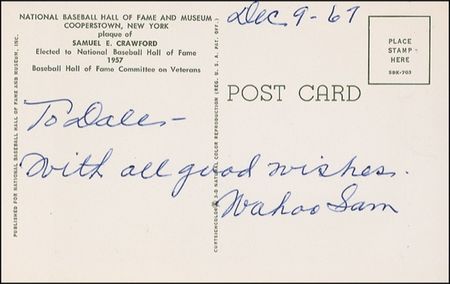 NATIONAL BASEBALL HALL OF FAME AND MUSEUM
COOPERSTOWN, NEW YORK
plaque of
SAMUEL E. CRAWFORD
Elected to National Baseball Hall of Fame
1957
Baseball Hall of Fame Committee on Veterans
Dec 9-67
PLACE
STAMP
HERE
SBK-703
POST CARD
To Dale-
With all good wishes.
Wahoo Sam
PUBLISHED FOR NATIONAL BASEBALL HALL OF FAME AND MUSEUM, INC.
CURTEICHCOLOR 3-D NATURAL COLOR REPRODUCTION (REG. U. S. A. PAT. OFF.)